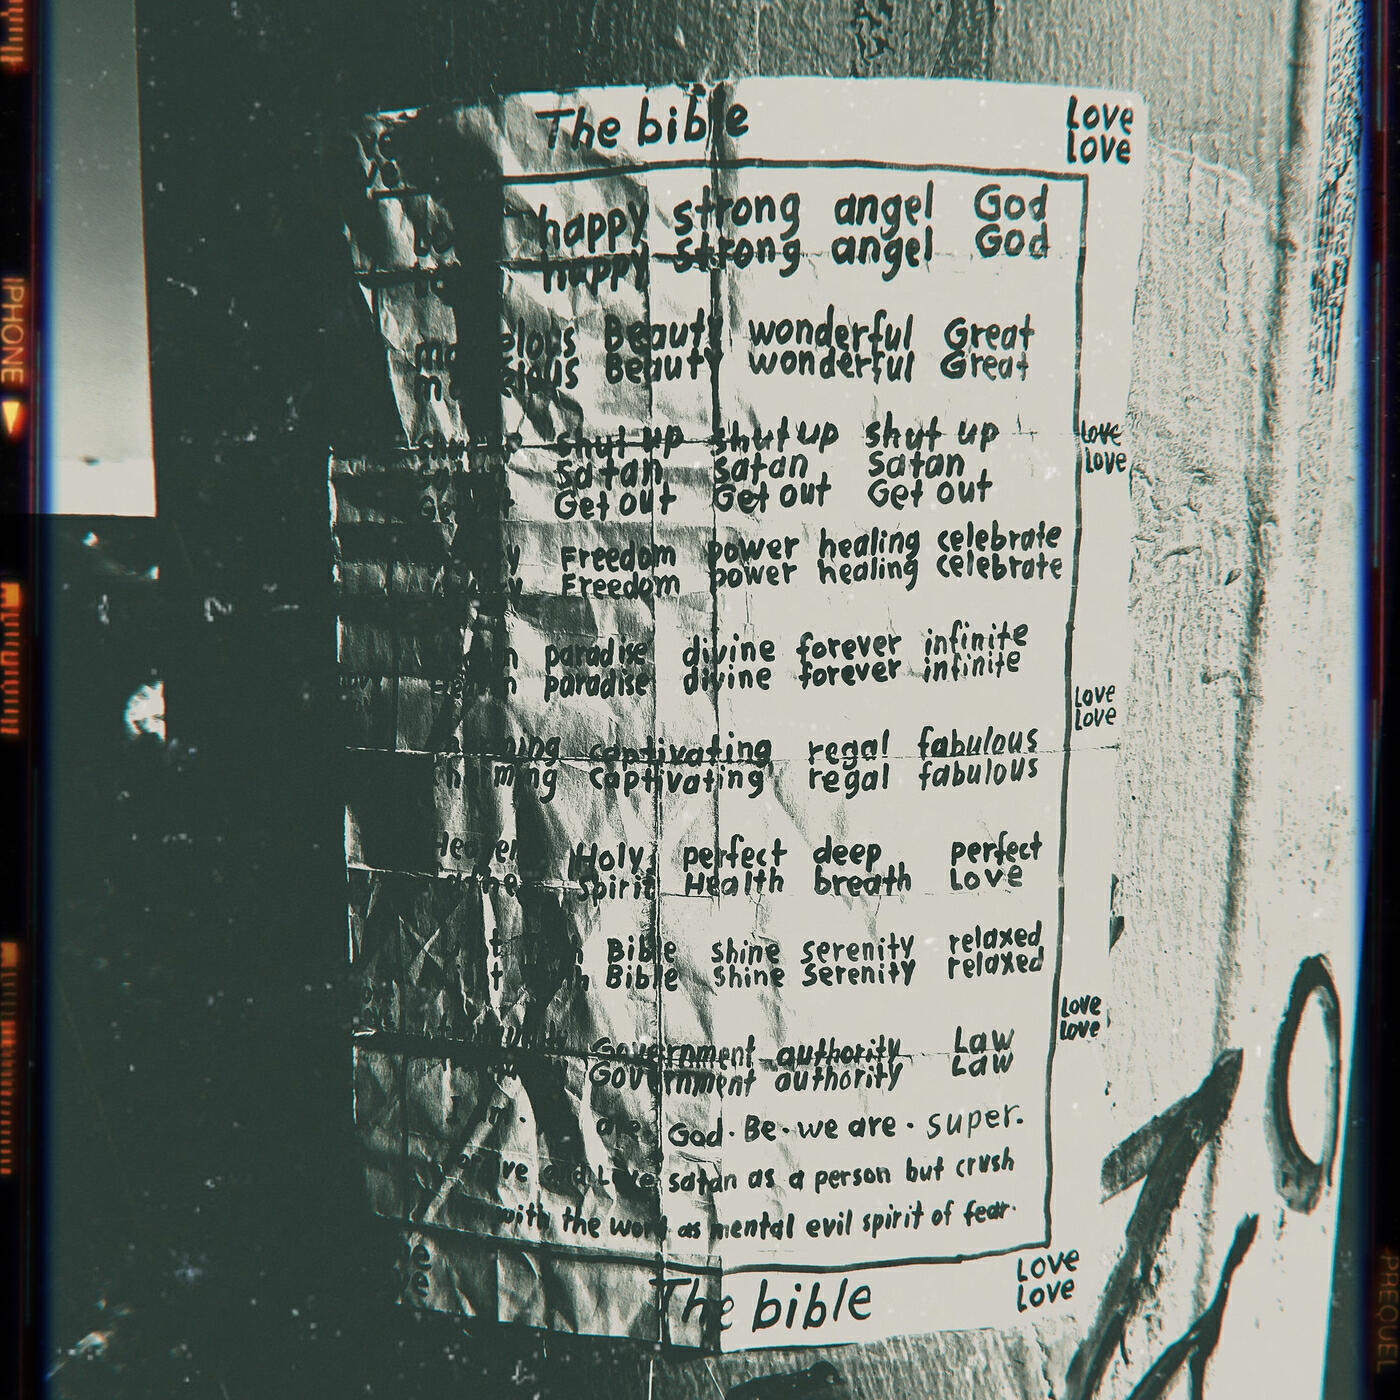 The bible
Love
Love
happy strong angel God
happy strong angel God
marvelous Beauty wonderful Great
marvelous Beauty wonderful Great
shut up shut up shut up shut up
satan satan satan
Get out Get out Get out Get out
Love
Love
Freedom power healing celebrate
Freedom power healing celebrate
paradise divine forever infinite
paradise divine forever infinite
Love
Love
captivating regal fabulous
captivating regal fabulous
Holy perfect deep perfect
spirit Health breath Love
Bible shine serenity relaxed
Bible shine serenity relaxed
Love
Love
Government authority Law
Government authority Law
are God · Be · we are · super.
and Love satan as a person but crush
with the word as mental evil spirit of fear.
Love
Love
The bible
IPHONE